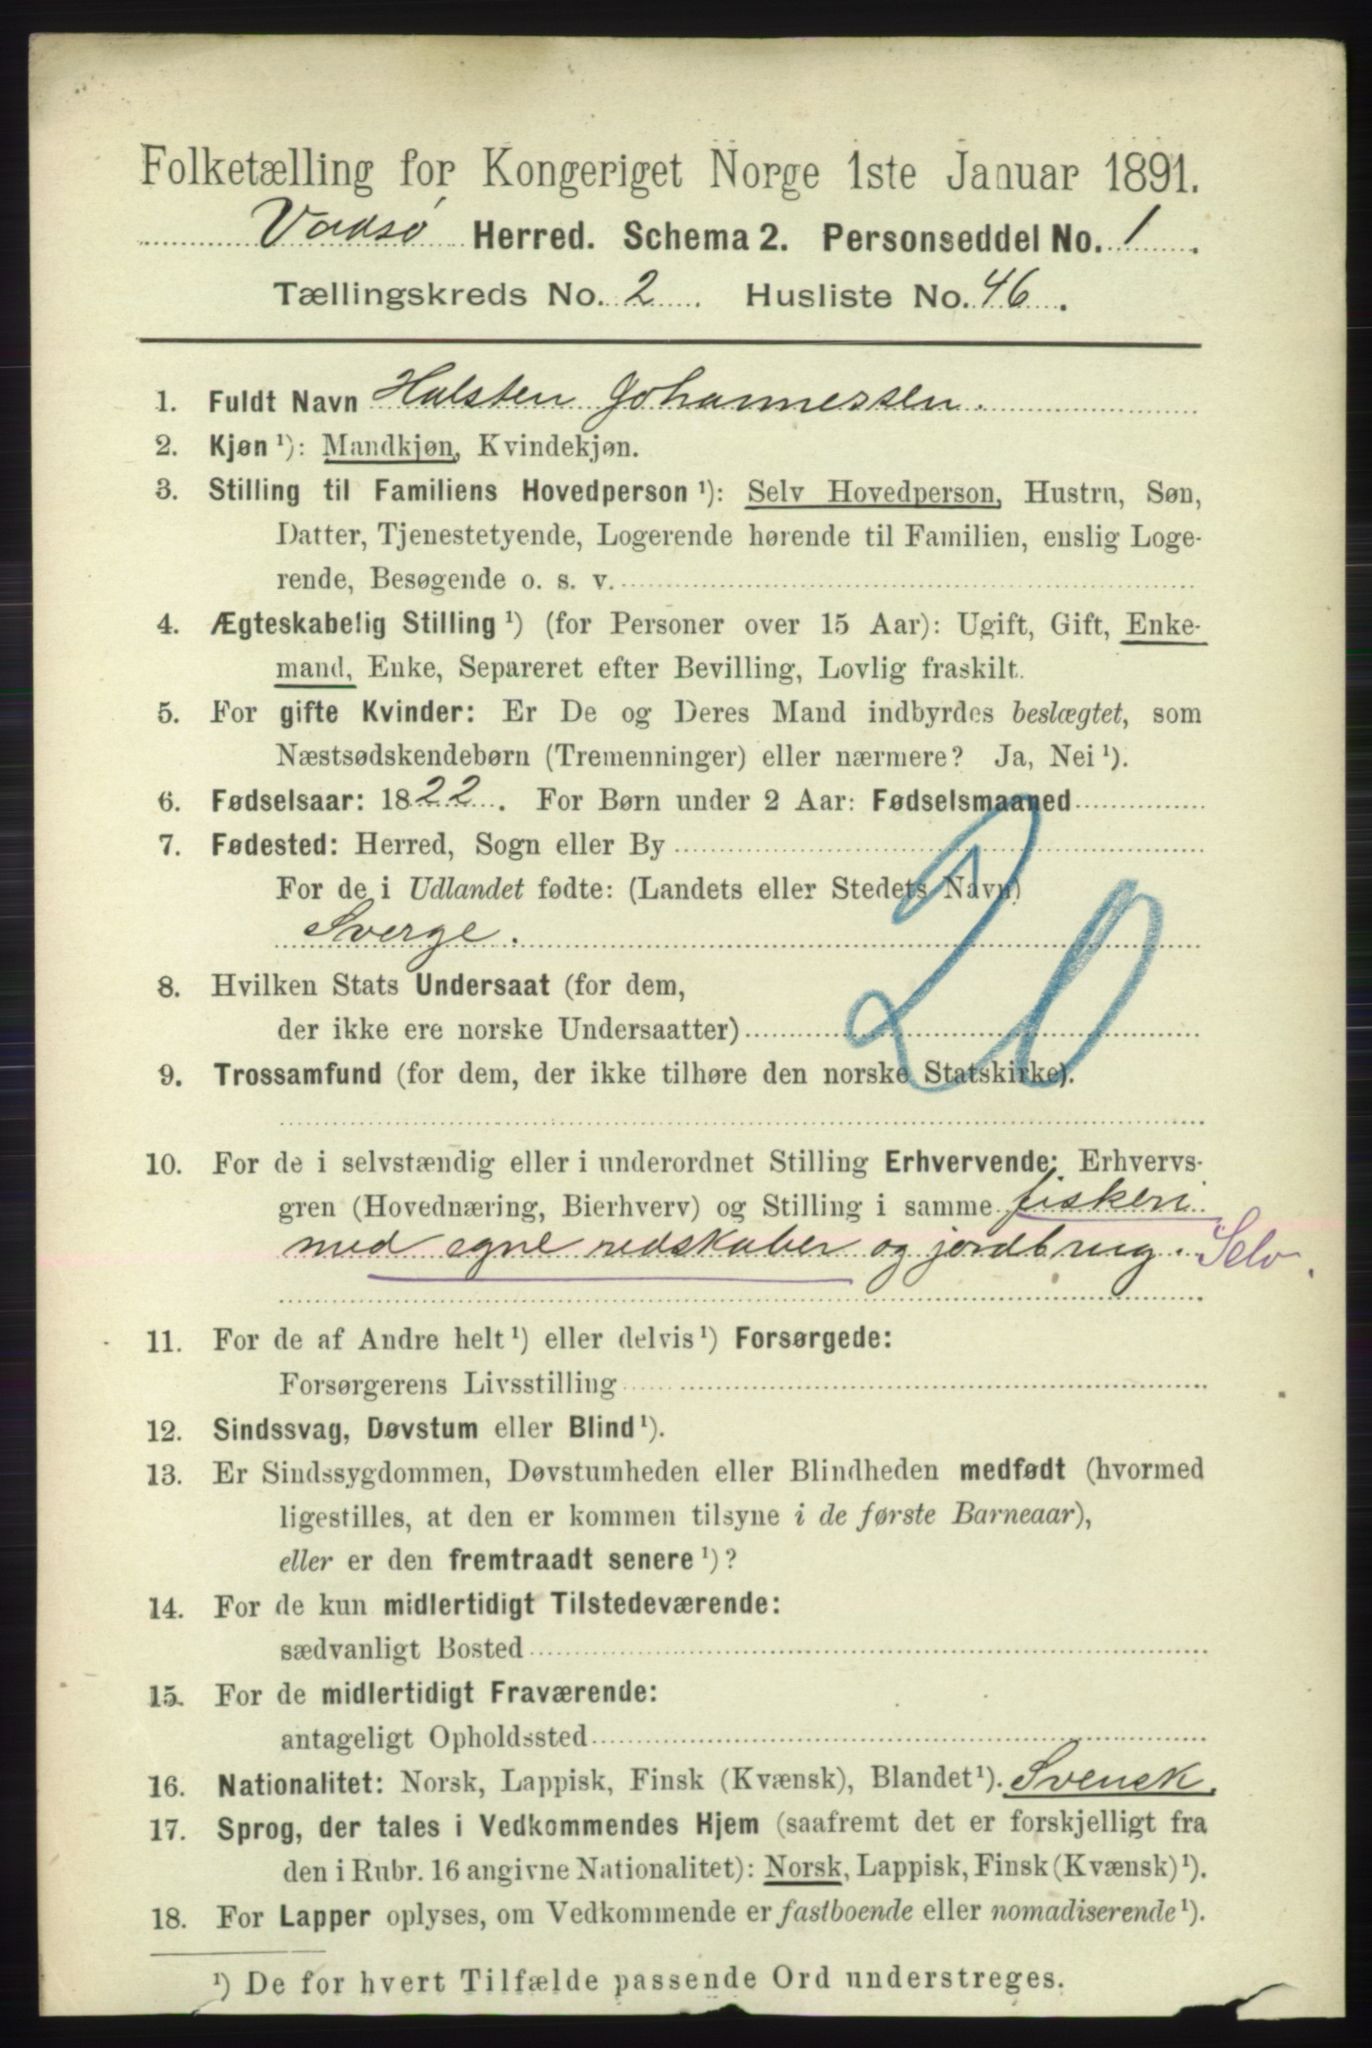 Folketælling for Kongeriget Norge 1ste Januar 1891.
Vadsø Herred. Schema 2. Personseddel No. 1.
Tællingskreds No. 2. Husliste No. 46.
1. Fuldt Navn Halsten Johannessen.
2. Kjøn ¹): Mandkjøn, Kvindekjøn.
3. Stilling til Familiens Hovedperson ¹): Selv Hovedperson, Hustru, Søn,
Datter, Tjenestetyende, Logerende hørende til Familien, enslig Loge-
rende, Besøgende o. s. v.
4. Ægteskabelig Stilling ¹) (for Personer over 15 Aar): Ugift, Gift, Enke-
mand, Enke, Separeret efter Bevilling, Lovlig fraskilt.
5. For gifte Kvinder: Er De og Deres Mand indbyrdes beslægtet, som
Næstsødskendebørn (Tremenninger) eller nærmere? Ja, Nei ¹).
6. Fødselsaar: 1822. For Børn under 2 Aar: Fødselsmaaned
7. Fødested: Herred, Sogn eller By
For de i Udlandet fødte: (Landets eller Stedets Navn)
Sverge.
20
8. Hvilken Stats Undersaat (for dem,
der ikke ere norske Undersaatter)
9. Trossamfund (for dem, der ikke tilhøre den norske Statskirke).
10. For de i selvstændig eller i underordnet Stilling Erhvervende: Erhvervs-
gren (Hovednæring, Bierhverv) og Stilling i samme fiskeri
med egne redskaber og jordbrug. Selv.
11. For de af Andre helt ¹) eller delvis ¹) Forsørgede:
Forsørgerens Livsstilling
12. Sindssvag, Døvstum eller Blind ¹).
13. Er Sindssygdommen, Døvstumheden eller Blindheden medfødt (hvormed
ligestilles, at den er kommen tilsyne i de første Barneaar),
eller er den fremtraadt senere ¹)?
14. For de kun midlertidigt Tilstedeværende:
sædvanligt Bosted
15. For de midlertidigt Fraværende:
antageligt Opholdssted
16. Nationalitet: Norsk, Lappisk, Finsk (Kvænsk), Blandet ¹). Svensk.
17. Sprog, der tales i Vedkommendes Hjem (saafremt det er forskjelligt fra
den i Rubr. 16 angivne Nationalitet): Norsk, Lappisk, Finsk (Kvænsk) ¹).
18. For Lapper oplyses, om Vedkommende er fastboende eller nomadiserende ¹).
¹) De for hvert Tilfælde passende Ord understreges.